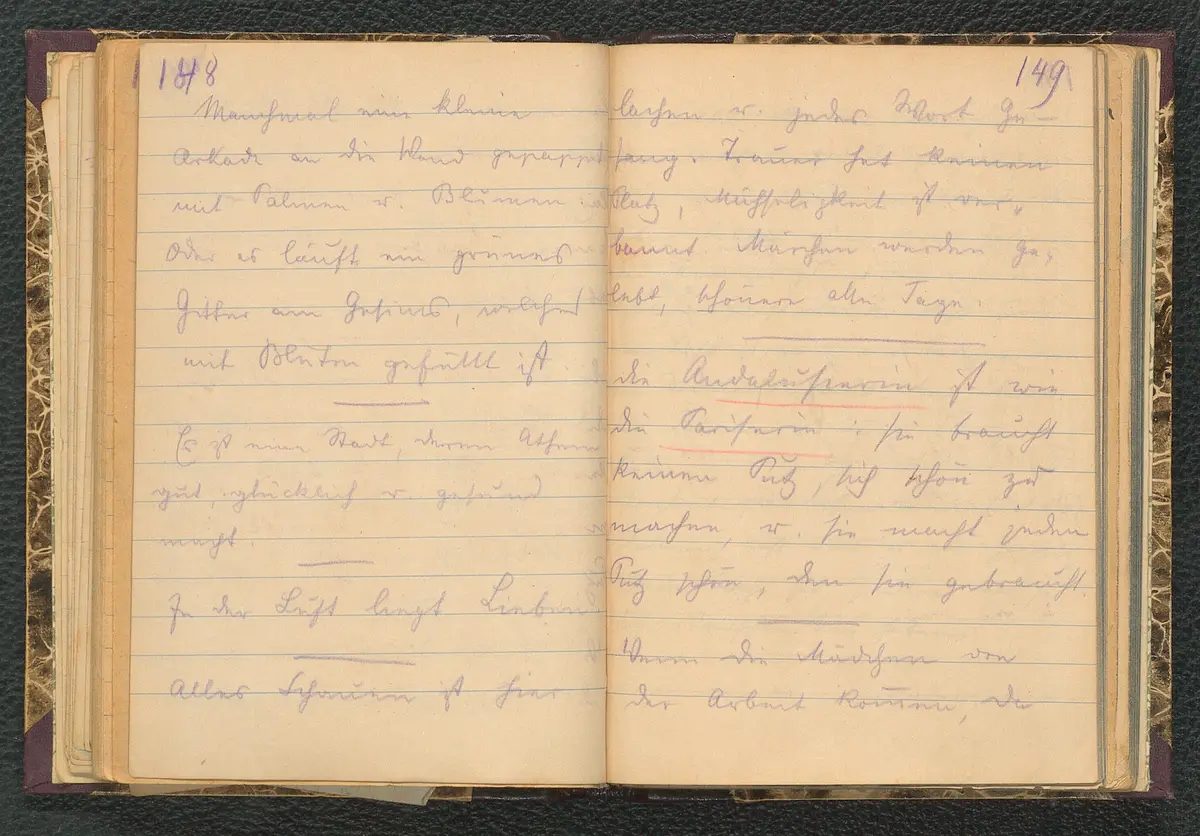 148
Manchmal eine kleine
Arkade an die Wand gepappt
mit Palmen u. Blumen.
Oder es läuft ein grünes
Gitter am Gesims, welches
mit Blüten gefüllt ist.
Es ist eine Stadt, deren Athem
gut, glücklich u. gesund
macht.
In der Luft liegt Lieben
Alles Schauen ist hier
149
lachen u. jedes Wort Ge-
sang. Trauer hat keinen
Platz, Mühseligkeit ist ver-
bannt. Märchen werden ge-
lebt, schönere alle Tage.
die Andalusierin ist wie
die Pariserin: sie braucht
keinen Putz, sich schön zu
machen, u. sie macht jeden
Putz schön, den sie gebraucht.
Wenn die Mädchen von
der Arbeit kom̅en, da